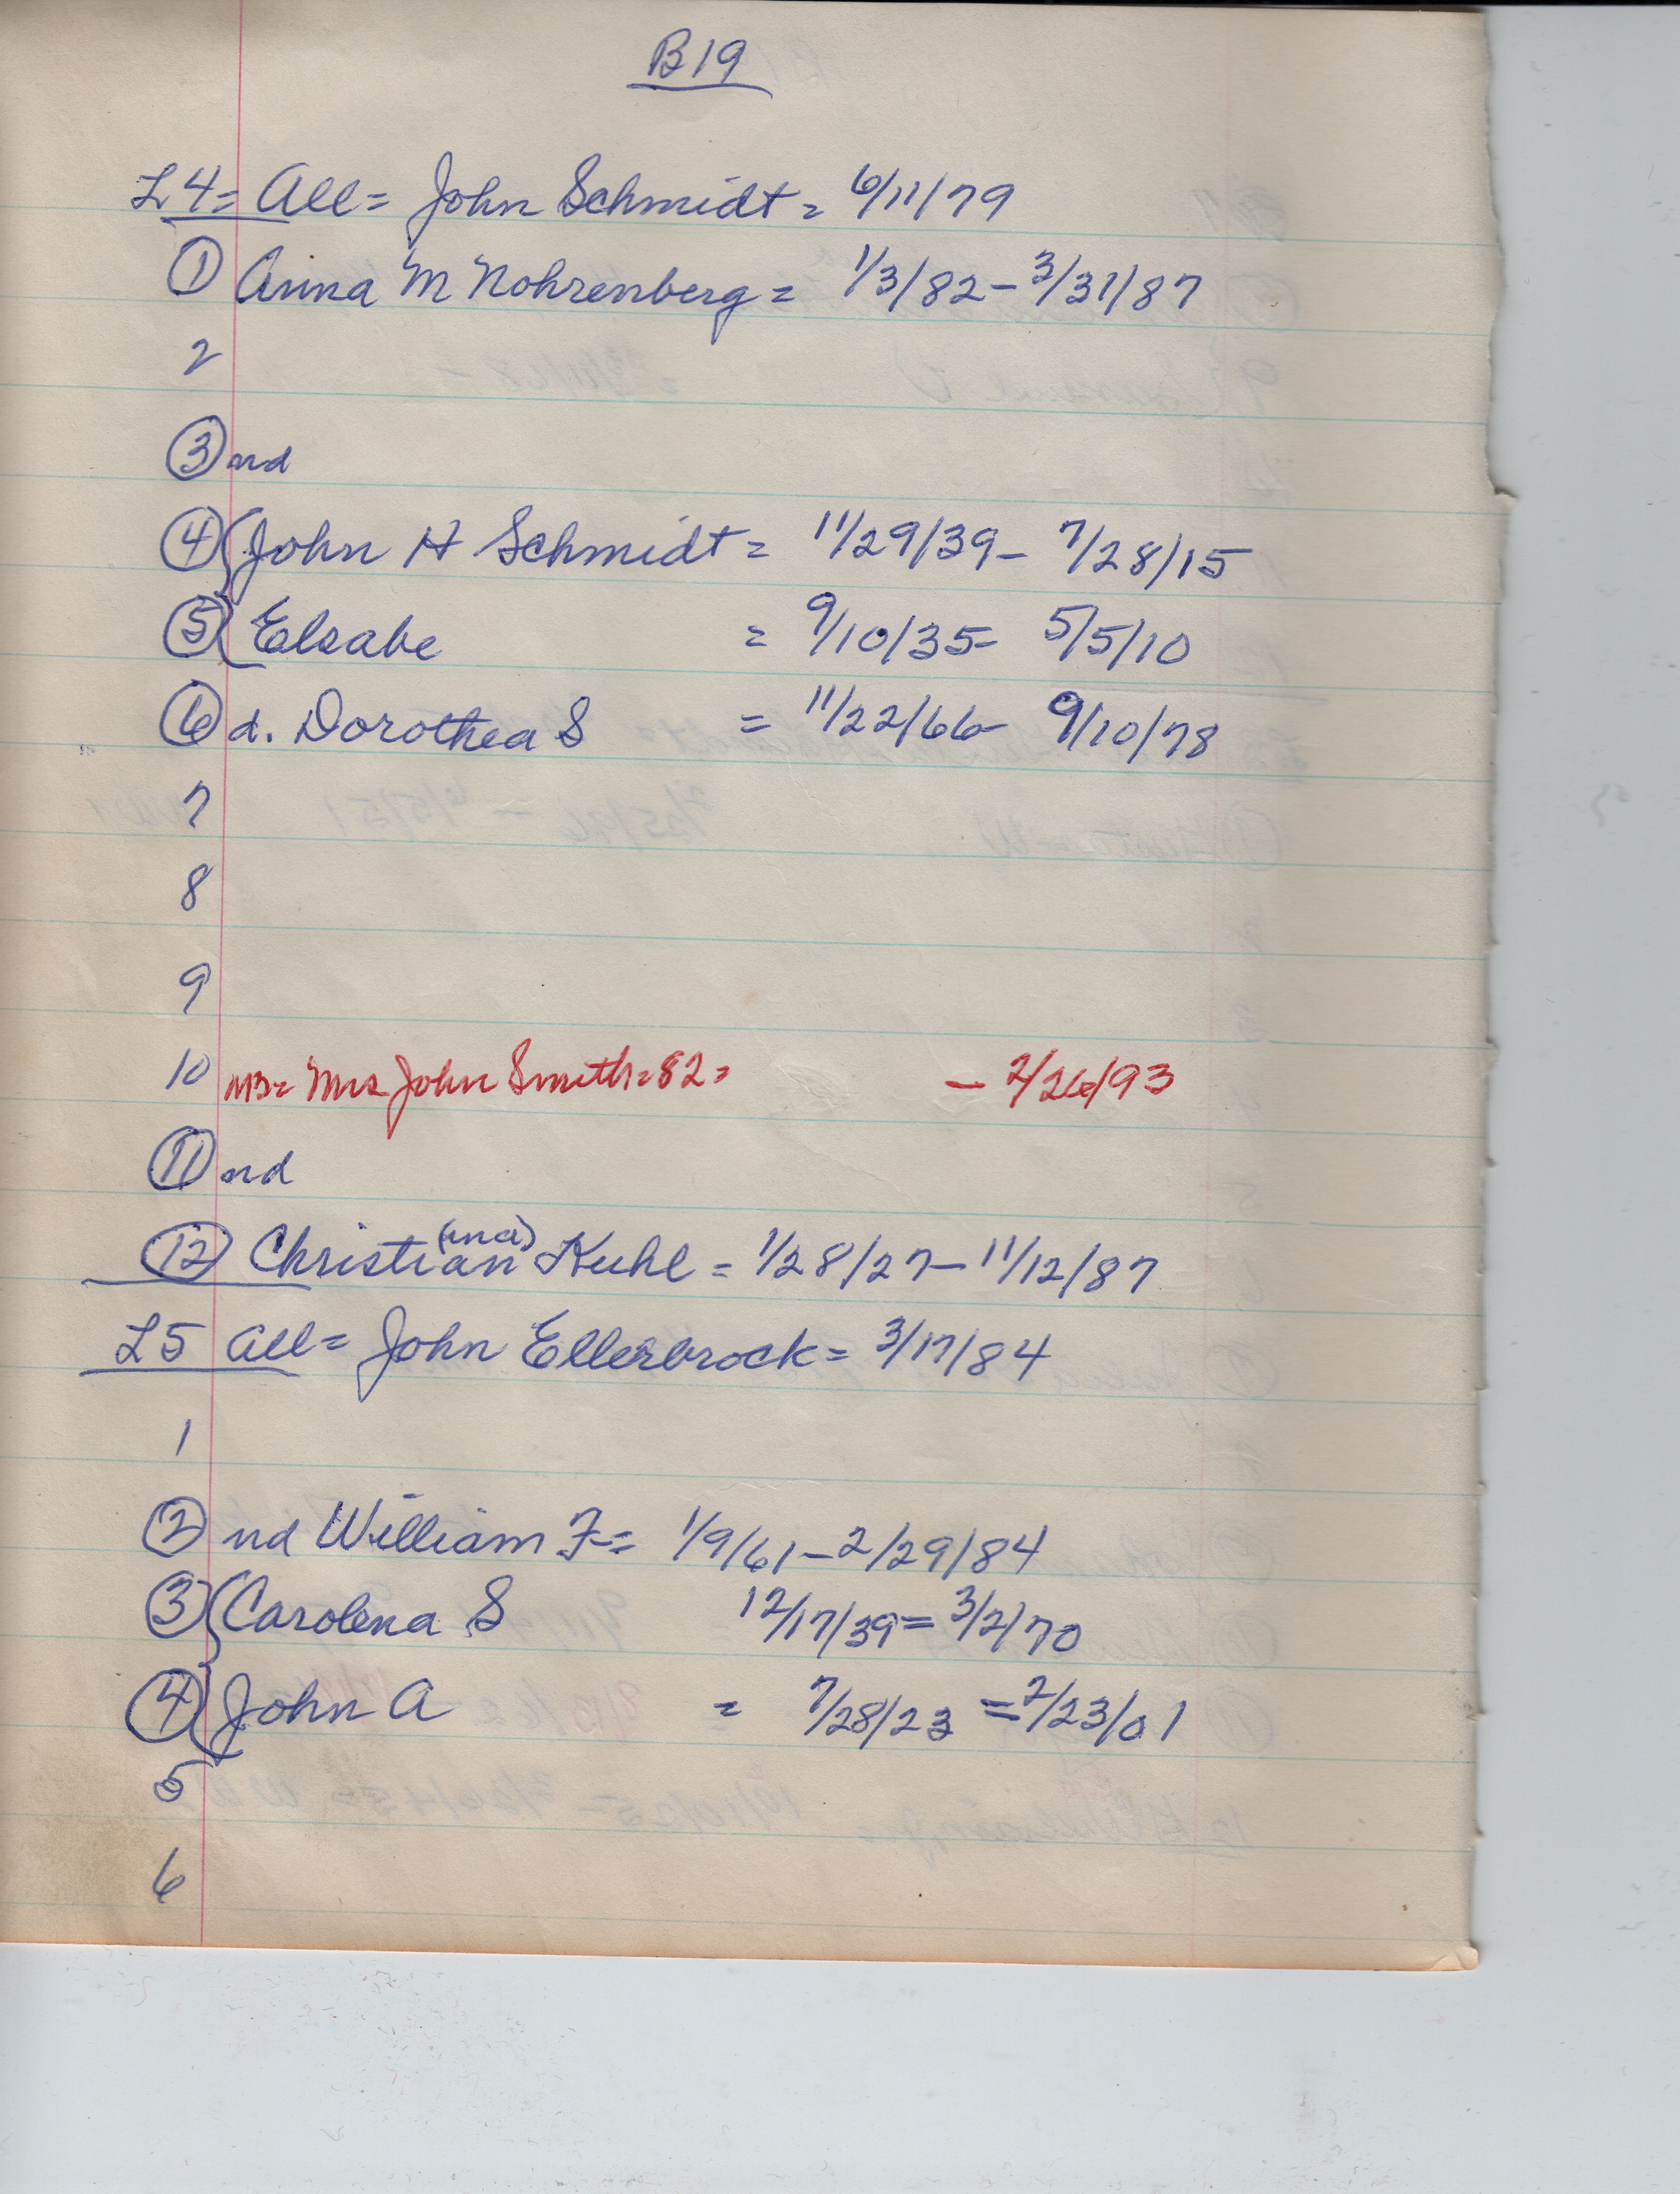 B19
L4= All= John Schmidt= 6/11/79
1 Anna M Nohrenberg= 1/3/82-3/31/87
2
3 nd
4 John H Schmidt= 11/29/39- 7/28/15
5 Elsabe = 9/10/35- 5/5/10
6 d. Dorothea S = 11/22/66- 9/10/78
7
8
9
10 NB= Mrs John Smith=82= - 2/26/93
11 nd
12 Christian (ina) Kuhl = 1/28/27-11/12/87
L5 All= John Ellerbrock= 3/17/84
1
2 nd William F= 1/9/61-2/29/84
3 Carolena S 12/17/39= 3/2/70
4 John A = 7/28/23 =2/23/01
5
6